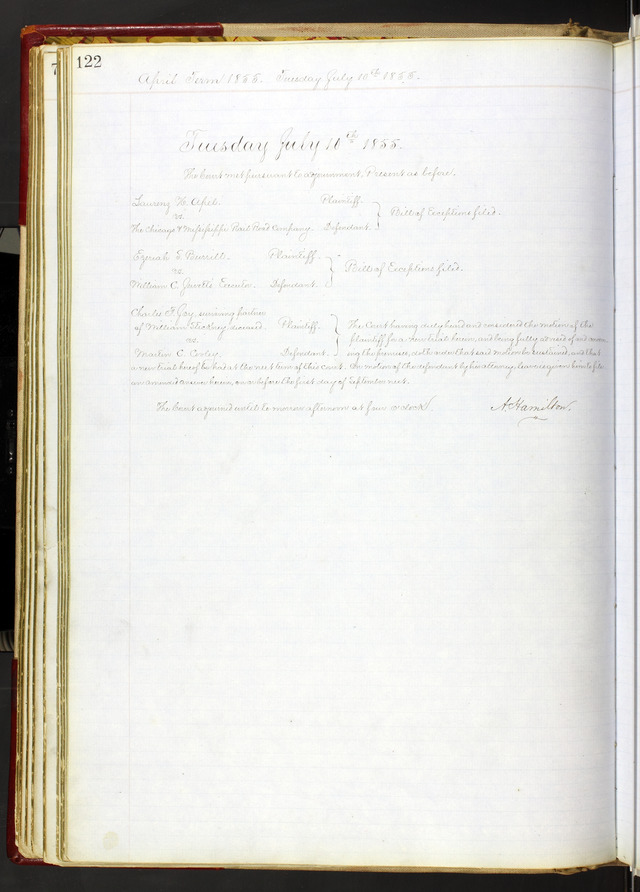 122
April Term 1855. Tuesday July 10th 1855.
Tuesday July 10th 1855.
The Court met pursuant to adjournment. Present as before.
H. Apis. Plaintiff
vs.
The Chicago & Mississippi Rail Road Company. Defendant. } Bill of Exceptions filed.
S. Plaintiff.
vs.
William C. Jewett's Executor. Defendant. } Bill of Exceptions filed.
Charles F. Gay, surviving partner
of William Stickney deceased. Plaintiff. } The Court having duly heard and considered the motion of the
vs. plaintiff for a new trial herein, and being fully advised of and concern
Martin C. Cooley. Defendant. ing the premises, doth order that said motion be sustained, and that
a new trial hereof be had at the next term of this Court. On motion of the defendant by his attorney leave is given him to file
an amended answer herein, on or before the first day of September next.
The Court adjourned until to morrow afternoon at four o'clock.
A. Hamilton.